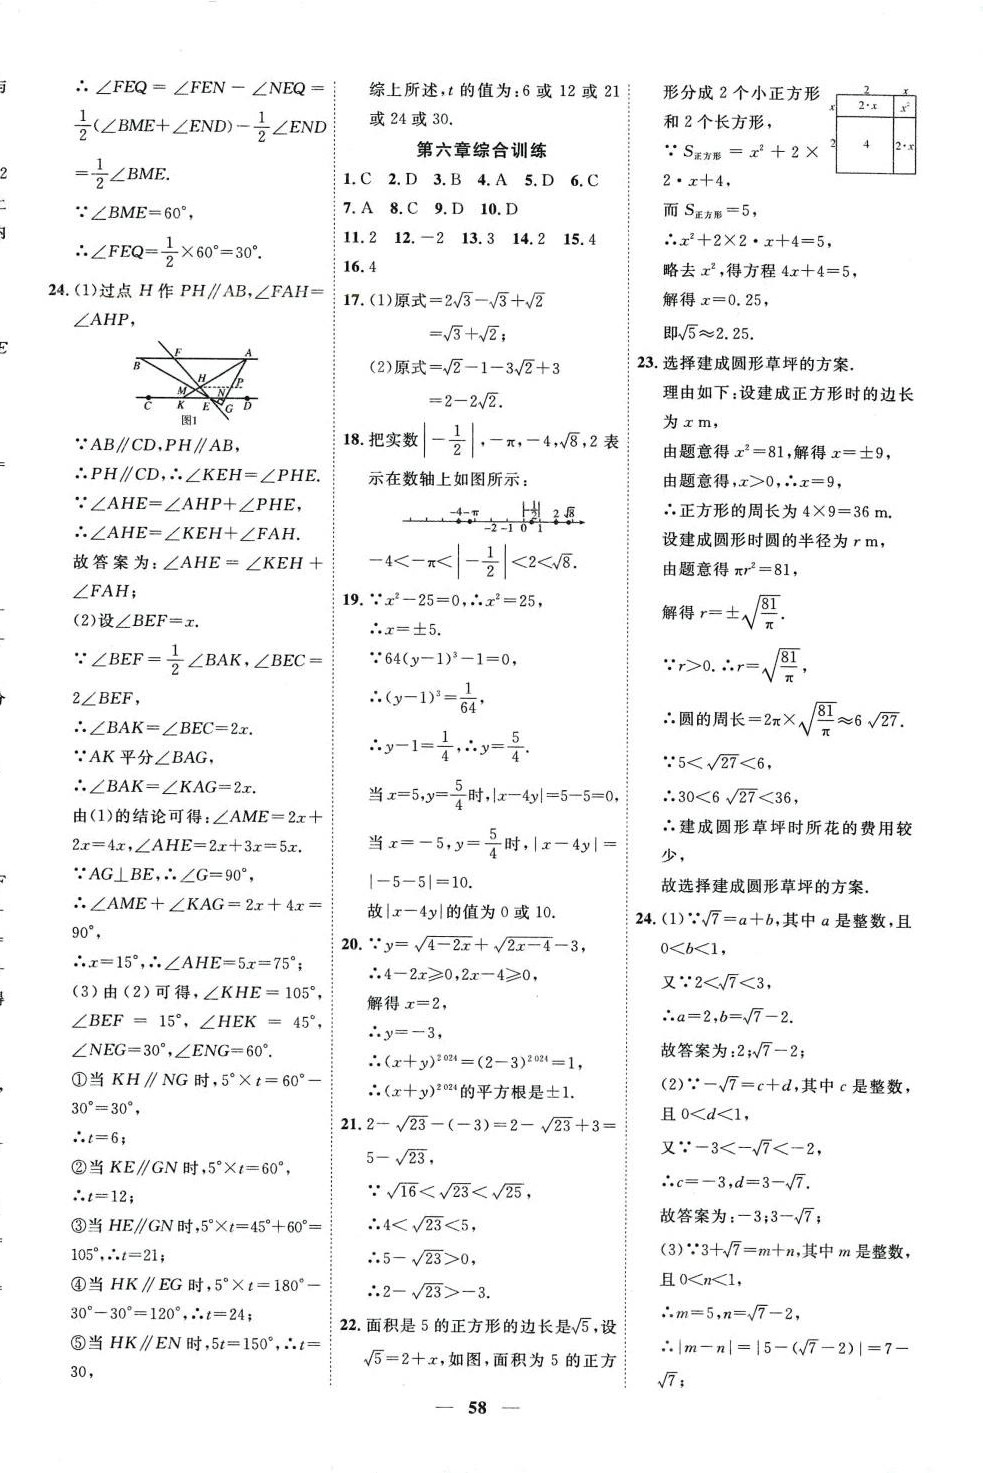 ∴∠FEQ = ∠FEN - ∠NEQ =
1/2(∠BME+∠END)-1/2∠END
=1/2∠BME.
∵∠BME=60°,
∴∠FEQ=1/2×60°=30°.
24.(1)过点 H 作 PH∥AB,∠FAH=
∠AHP,
F A
B
H P
M N
C K E G D
图1
∵AB∥CD,PH∥AB,
∴PH∥CD,∴∠KEH=∠PHE.
∵∠AHE=∠AHP+∠PHE,
∴∠AHE=∠KEH+∠FAH.
故答案为:∠AHE=∠KEH+
∠FAH;
(2)设∠BEF=x.
∵∠BEF=1/2∠BAK,∠BEC=
2∠BEF,
∴∠BAK=∠BEC=2x.
∵AK 平分∠BAG,
∴∠BAK=∠KAG=2x.
由(1)的结论可得:∠AME=2x+
2x=4x,∠AHE=2x+3x=5x.
∵AG⊥BE,∴∠G=90°,
∴∠AME+∠KAG=2x+4x=
90°,
∴x=15°,∴∠AHE=5x=75°;
(3)由(2)可得,∠KHE=105°,
∠BEF = 15°, ∠HEK = 45°,
∠NEG=30°,∠ENG=60°.
①当 KH∥NG 时,5°×t=60°-
30°=30°,
∴t=6;
②当 KE∥GN 时,5°×t=60°,
∴t=12;
③当 HE∥GN时,5°×t=45°+60°=
105°,∴t=21;
④当 HK∥EG 时,5°×t=180°-
30°-30°=120°,∴t=24;
⑤当 HK∥EN 时,5t=150°,∴t=
30,
综上所述,t 的值为:6 或 12 或 21
或 24 或 30.
第六章综合训练
1.C 2.D 3.B 4.A 5.D 6.C
7.A 8.C 9.D 10.D
11.2 12.-2 13.3 14.2 15.4
16.4
17.(1)原式=2√3-√3+√2
=√3+√2;
(2)原式=√2-1-3√2+3
=2-2√2.
18.把实数|-1/2|,-π,-4,√8,2 表
示在数轴上如图所示:
-4-π |-1/2| 2 √8
-2-1 0 1
-4<-π<|-1/2|<2<√8.
19.∵x²-25=0,∴x²=25,
∴x=±5.
∵64(y-1)³-1=0,
∴(y-1)³=1/64,
∴y-1=1/4,∴y=5/4.
当x=5,y=5/4时,|x-4y|=5-5=0,
当 x=-5,y=5/4时,|x-4y|=
|-5-5|=10.
故|x-4y|的值为 0 或 10.
20.∵y=√4-2x+√2x-4-3,
∴4-2x⩾0,2x-4⩾0,
解得 x=2,
∴y=-3,
∴(x+y)²⁰²⁴=(2-3)²⁰²⁴=1,
∴(x+y)²⁰²⁴的平方根是±1.
21.2-√23-(-3)=2-√23+3=
5-√23,
∵√16<√23<√25,
∴4<√23<5,
∴5-√23>0,
∴2-√23>-3.
22.面积是 5 的正方形的边长是√5,设
√5=2+x,如图,面积为 5 的正方
形分成 2 个小正方形
和 2 个长方形,
2 x
x 2·x x²
2 4 2·x
∵S正方形 = x² + 2 ×
2·x+4,
而 S正方形=5,
∴x²+2×2·x+4=5,
略去 x²,得方程 4x+4=5,
解得 x=0.25,
即√5≈2.25.
23.选择建成圆形草坪的方案.
理由如下:设建成正方形时的边长
为 x m,
由题意得 x²=81,解得 x=±9,
由题意得,x>0,∴x=9,
∴正方形的周长为 4×9=36 m.
设建成圆形时圆的半径为 r m,
由题意得 πr²=81,
解得 r=±√81/π.
∵r>0.∴r=√81/π,
∴圆的周长=2π×√81/π≈6√27.
∵5<√27<6,
∴30<6√27<36,
∴建成圆形草坪时所花的费用较
少,
故选择建成圆形草坪的方案.
24.(1)∵√7=a+b,其中 a 是整数,且
0<b<1,
又∵2<√7<3,
∴a=2,b=√7-2.
故答案为:2;√7-2;
(2)∵-√7=c+d,其中 c 是整数,
且 0<d<1,
又∵-3<-√7<-2,
∴c=-3,d=3-√7.
故答案为:-3;3-√7;
(3)∵3+√7=m+n,其中 m 是整数,
且 0<n<1,
∴m=5,n=√7-2,
∴|m-n|=|5-(√7-2)|=7-
√7;
— 58 —